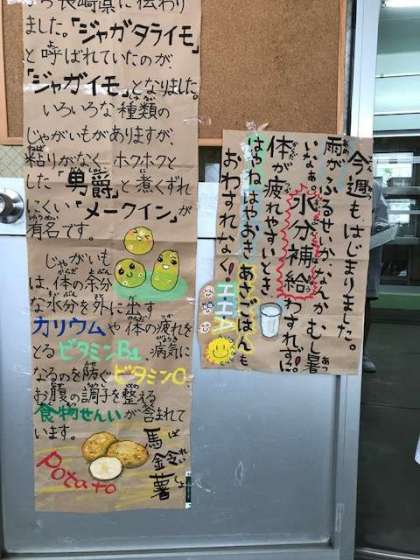 ら長崎県に伝わり
ました。「ジャガタライモ」
と呼ばれていたのが、
「ジャガイモ」となりました。
いろいろな種類の
じゃがいもがありますが、
粘りがなく、ホクホクと
した「男爵」と煮くずれ
にくい「メークイン」が
有名です。
じゃがいも
は、体の余分
な水分を外に出す
カリウムや体の疲れを
とるビタミンB1、病気に
なるのを防ぐビタミンC、
お腹の調子を整える
食物せんいが含まれて
います。
馬鈴薯
ばれいしょ
Potato
今週もはじまりました。
雨がふるせいか、なんかむし暑
いなぁ。水分補給わすれずに!
体が疲れやすいとき
はやねはやおきあさごはんも
おわすれなく!